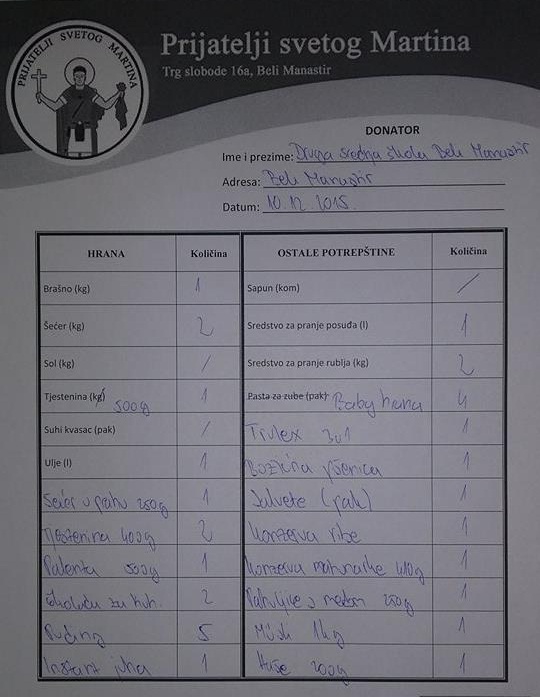 PRIJATELJI SVETOG MARTINA
Prijatelji svetog Martina
Trg slobode 16a, Beli Manastir
DONATOR
Ime i prezime: Druga srednja škola Beli Manastir
Adresa: Beli Manastir
Datum: 10.12.2015.
HRANA Količina OSTALE POTREPŠTINE Količina
Brašno (kg) 1 Sapun (kom) /
Šećer (kg) 2 Sredstvo za pranje posuđa (l) 1
Sol (kg) / Sredstvo za pranje rublja (kg) 2
Tjestenina (kg) 500g 1 Pasta za zube (pak) Baby hrana 4
Suhi kvasac (pak) / 3u1 1
Ulje (l) 1 Božićna pšenica 1
Šećer u prahu 250g 1 Salvete (pak) 1
Tjestenina 400g 2 Konzerva ribe 1
Palenta 500g 1 Konzerva mahunarke 410g 1
Čokolada za kuh. 2 Pahuljice s medom 250g 1
Puding 5 Müsli 1kg 1
Instant juha 1 200g 1